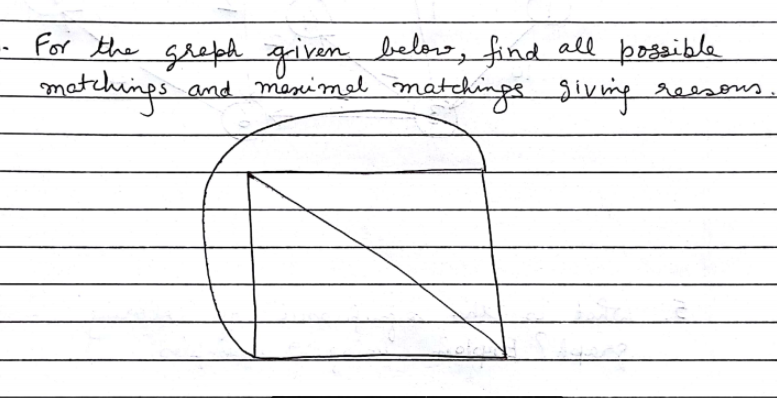 For the graph given below, find all possible
matchings and maximal matchings giving reasons.